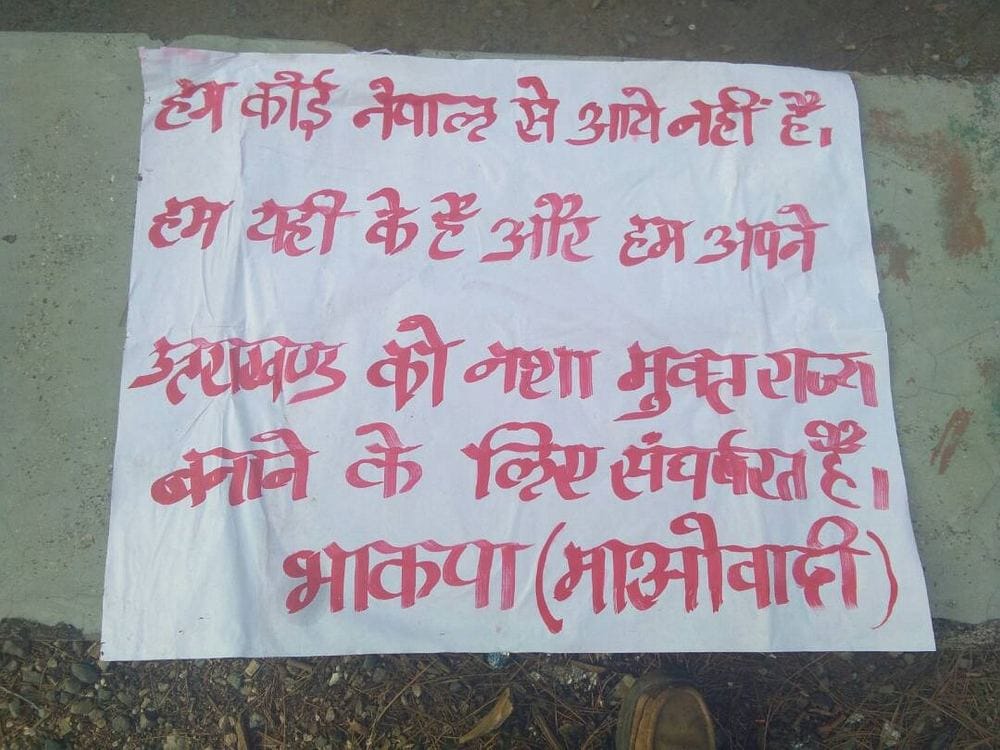 हम कोई नेपाल से आये नहीं है।
हम यही के है और हम अपने
उत्तराखण्ड को नशा मुक्त राज्य
बनाने के लिए संघर्षरत है।
भाकपा (माओवादी)